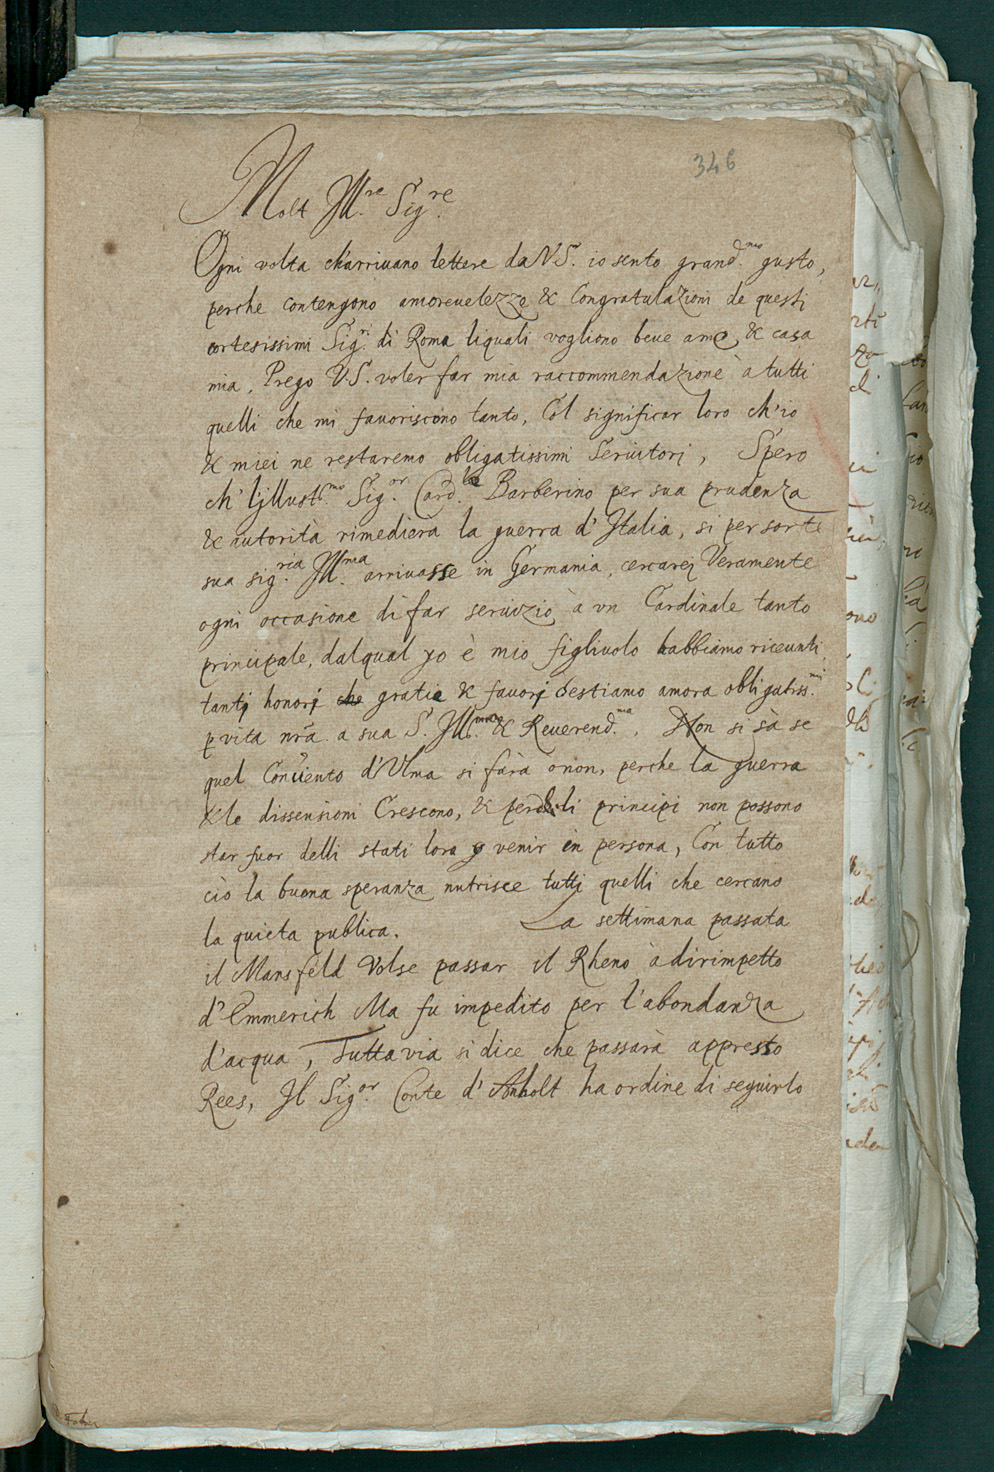 346
Molt Ill.re Sig.re
Ogni volta ch'arriuano lettere da V.S. io sento grand.mo gusto,
perche contengono amoreuelezze & Congratulazioni de questi
cortesissimi Sig.ri di Roma liquali vogliono bene a me & casa
mia. Prego V.S. voler far mia raccommendazione à tutti
quelli che mi fauoriscono tanto, Col significar loro ch'io
& miei ne restaremo obligatissimi Seruitori, Spero
ch' l'jllust.mo Sig.or Card.le Barberino per sua prudenza
& autorità rimediera la guerra d'Italia, si per sorte
sua sig.ria Ill.ma arriuasse in Germania, cercarei Veramente
ogni occasione di far seruizio à vn Cardinale tanto
principale, dalqual yo è mio figliuolo habbiamo riceuuti
tantj honorj che gratie & fauorj Sestiamo amora obligatiss.mi
p vita nra a sua S. Ill.ma & Reuerend.ma. Non si sà se
quel Conuento d'Vlma si farà onon, perche la guerra
& le dissensioni Crescono, & perche li principi non possono
star fuor delli stati loro y venir in persona, Con tutto
ciò la buona speranza nutrisce tuttj quelli che cercano
la quieta publica. La settimana passata
il Mansfeld Volse passar il Rheno à dirimpetto
d'Emmerich Ma fu impedito per l'abondanza
d'acqua, Tuttavia si dice che passarà appresso
Rees, Il Sig.or Conte d'Anholt ha ordine di seguirlo